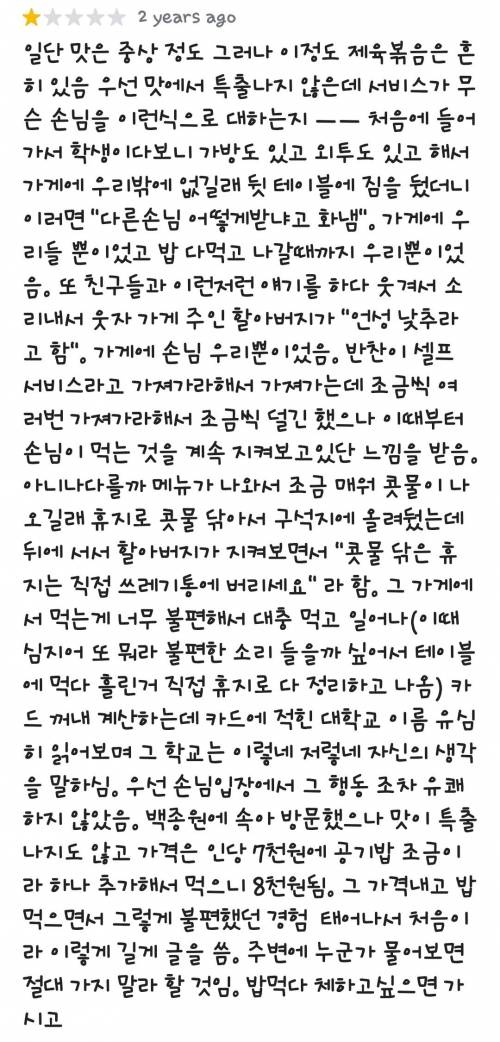 2 years ago
일단 맛은 중상 정도 그러나 이정도 제육볶음은 흔
히 있음 우선 맛에서 특출나지 않은데 서비스가 무
슨 손님을 이런식으로 대하는지 ㅡㅡ 처음에 들어
가서 학생이다보니 가방도 있고 외투도 있고 해서
가게에 우리밖에 없길래 뒷 테이블에 짐을 뒀더니
이러면 "다른손님 어떻게받냐고 화냄". 가게에 우
리들 뿐이었고 밥 다먹고 나갈때까지 우리뿐이었
음. 또 친구들과 이런저런 얘기를 하다 웃겨서 소
리내서 웃자 가게 주인 할아버지가 "언성 낮추라
고 함". 가게에 손님 우리뿐이었음. 반찬이 셀프
서비스라고 가져가라해서 가져가는데 조금씩 여
러번 가져가라해서 조금씩 덜긴 했으나 이때부터
손님이 먹는 것을 계속 지켜보고있단 느낌을 받음.
아니나다를까 메뉴가 나와서 조금 매워 콧물이 나
오길래 휴지로 콧물 닦아서 구석지에 올려뒀는데
뒤에 서서 할아버지가 지켜보면서 "콧물 닦은 휴
지는 직접 쓰레기통에 버리세요" 라 함. 그 가게에
서 먹는게 너무 불편해서 대충 먹고 일어나(이때
심지어 또 뭐라 불편한 소리 들을까 싶어서 테이블
에 먹다 흘린거 직접 휴지로 다 정리하고 나옴) 카
드 꺼내 계산하는데 카드에 적힌 대학교 이름 유심
히 읽어보며 그 학교는 이렇네 저렇네 자신의 생각
을 말하심. 우선 손님입장에서 그 행동 조차 유쾌
하지 않았음. 백종원에 속아 방문했으나 맛이 특출
나지도 않고 가격은 인당 7천원에 공기밥 조금이
라 하나 추가해서 먹으니 8천원됨. 그 가격내고 밥
먹으면서 그렇게 불편했던 경험 태어나서 처음이
라 이렇게 길게 글을 씀. 주변에 누군가 물어보면
절대 가지 말라 할 것임. 밥먹다 체하고싶으면 가
시고